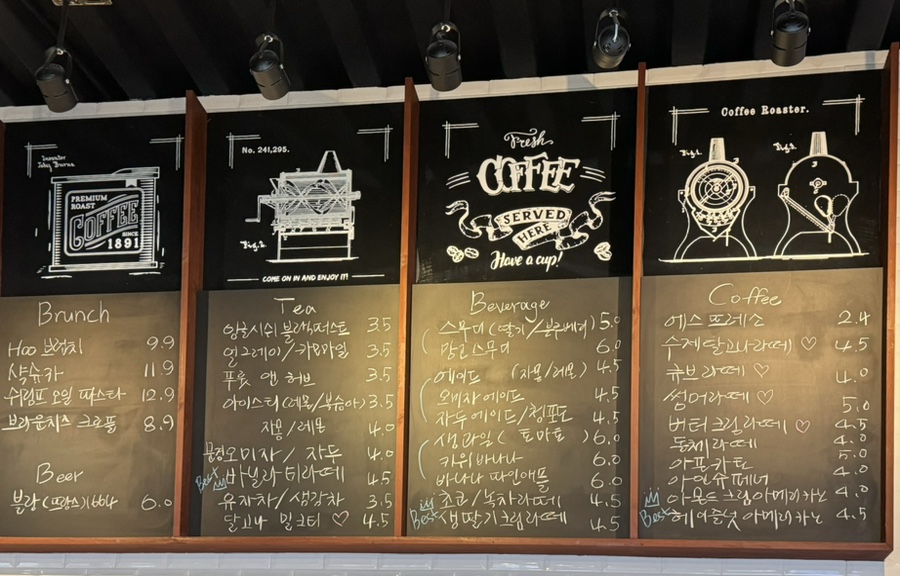 PREMIUM
ROAST
COFFEE
SINCE
1891
Brunch
Hoo 브런치 9.9
샥슈카 11.9
쉬림프 오일 파스타 12.9
브라운치즈 크로플 8.9
Beer
블랑 (프랑스) 1664 6.0
No. 241,295.
Fig.2.
COME ON IN AND ENJOY IT!
Tea
잉글리쉬 블랙퍼스트 3.5
얼그레이/카모마일 3.5
푸룻 앤 허브 3.5
아이스티 (레몬/복숭아) 3.5
자몽/레몬 4.0
오미자/자두 4.0
Best 바닐라 티라떼 4.5
유자차/생강차 3.5
달고나 밀크티 ♡ 4.5
Fresh
COFFEE
SERVED
HERE
Have a cup!
Beverage
스무디 (딸기/블루베리) 5.0
망고 스무디 6.0
에이드 (자몽/레몬) 4.5
오미자 에이드 4.5
자두에이드/청포도 4.5
생과일 (토마토) 6.0
키위바나나 6.0
바나나 파인애플 6.0
초코/녹차라떼 4.5
Best 생딸기크림라떼 4.5
Coffee Roaster.
Fig.1.
Fig.2.
Coffee
에스프레소 2.4
수제달고나라떼 ♡ 4.5
큐브라떼 ♡ 4.0
썸머라떼 ♡ 5.0
버터크림라떼 ♡ 4.5
돌체라떼 4.0
아포카토 5.0
아인슈페너 4.0
아몬드크림아메리카노 4.0
Best 헤이즐넛 아메리카노 4.5